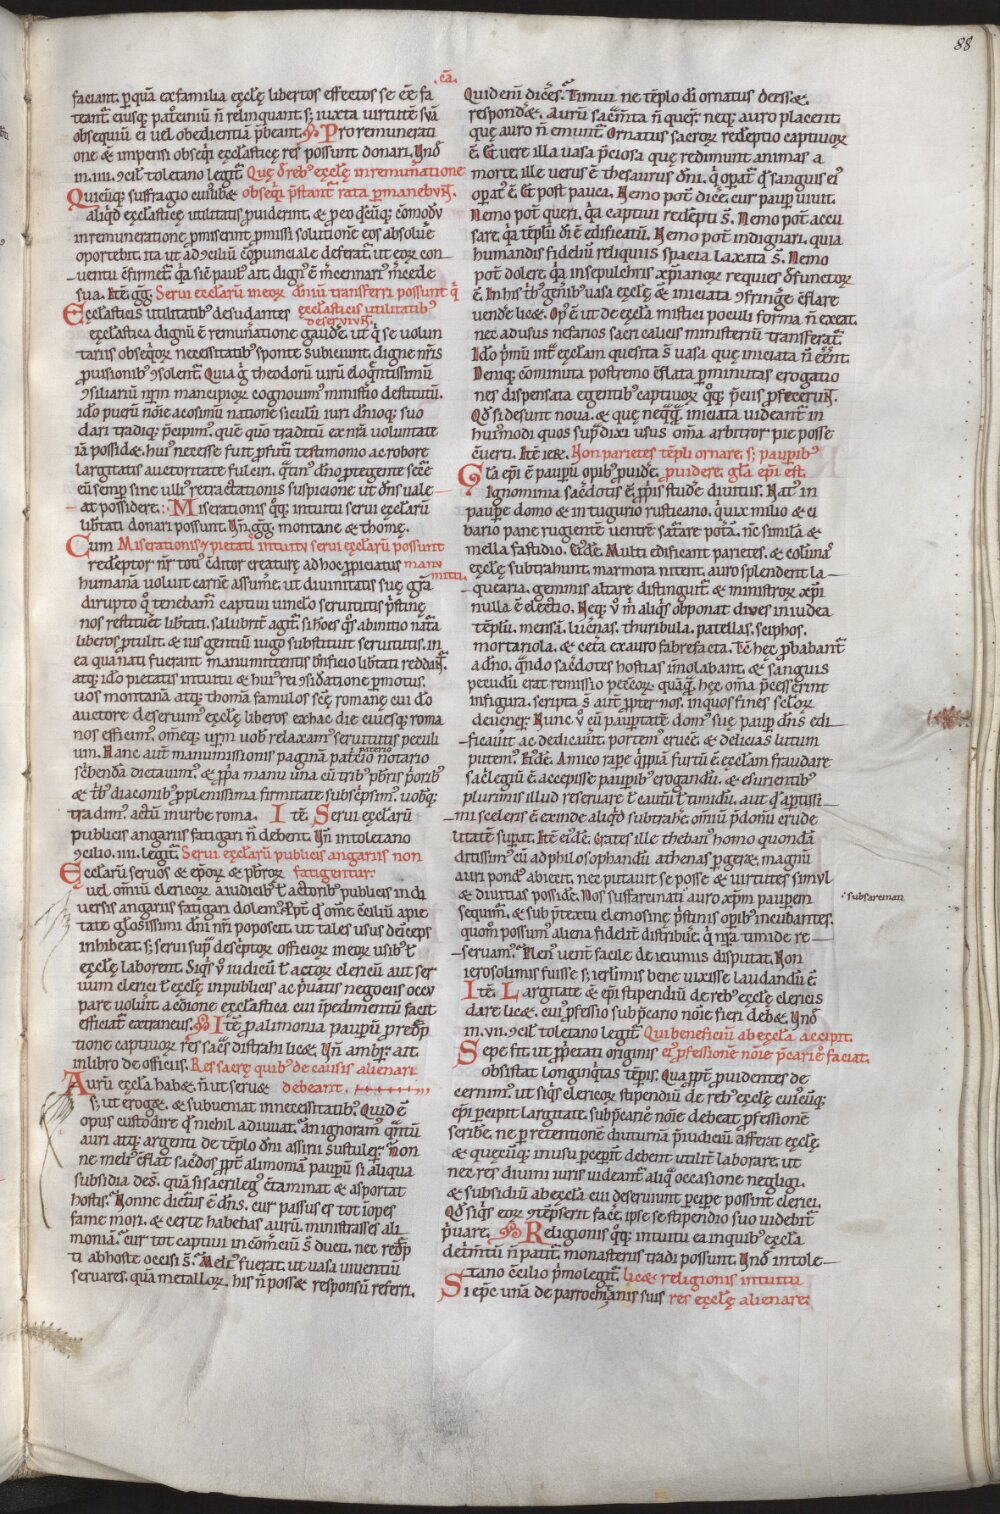 88
.cā.
faciant. ꝑ quā ex familia ęccłę libertos effectos se eē fa
teant᷑. eiusq; patrociniū ñ relinquant. s; iuxta uirtutē suā
obsequiū ei uel obedientiā p̄beant. Pro remunerati
one & impensi obseq̄i ęccłasticę res possunt donari. Vnď
in .iiii. ꝯcil̄ toletano legit᷑. Quę d̄ reb᷒ ęccłę in remun̄atione
Quicūq; suffragio cuilibæ obseq̄i p̄stant᷑ rata ꝑmanebunt.
aliqď ęccłasticę utilitatis ꝓuiderint. & ꝓ eo q̄cūq; cōmodū
in remuneratione ꝓmiserint ꝓmissi solutionē eos absoluē
oportebit. ita ut ad ꝯciliū cōꝓuinciale deferat᷑. ut eoꝝ con
uentu c̄firmet᷑. q̄a sic̄ paul᷒ ait. dign᷒ ē m̄cennari᷒ m̄cede
sua. Itē. gḡ. Serui ęccłarū in eoꝝ dn̄iū transferri possunt q̄
Ęccłasticis utilitatib᷒ desudantes ęccłasticis utilitatib᷒
deseruiunt.
ęccłastica dignū ē remun̄atione gaudē. ut q̄ se uolun
tariis obseq̄oꝝ necessitatib᷒ sponte subiciunt. digne nr̄is
ꝓuisionib᷒ ꝯsolent᷑. Quia g̊ theodorū uirū eloq̄ntissimū
ꝯsiliariū nr̄m mancipioꝝ cognouim᷒ ministio destitutū.
ido puerū noīe acosimū natione siculū iuri dn̄ioq; suo
dari tradiq; p̄cipim᷒. quē quō traditū ex nr̄a uoluntate
iā possidæ. hui᷒ necesse fuit p̄sut᷑i testimonio ac robore
largitatis auctoritate fulciri. q̄tin᷒ dn̄o ꝓtegente sec̄e
eū semꝑ sine ulli᷒ retractationis suspicione ut dn̄s uale
at possidere. Miserationis q̊q; intuitu serui ęccłarū
lib̄tati donari possunt. Vn̄. gḡg. montane & thomę.
Cum Miserationis & pietatis intuitu serui ęccłarū possunt
redēptor nr̄ toti᷒ c̄ditor creaturę ad hoc ꝓpiciatus manu
mitti.
humanā uoluit carnē assumē. ut diuinitatis suę gr̄a
dirupto q̊ tenebam᷑ captiui uinclo seruitutis p̄stinę
nos restitueret lib̄tati. salubrit̄ agit᷑. si hōēs q̊s ab initio nat̄a
liberos ꝓtulit. & ius gentiū iugo substituit seruitutis. in
ea qua nati fuerant manumittentis b̄nficio lib̄tati reddan᷑.
atq; ido pietatis intuitu & hui᷒ rei ꝯsid̄atione ꝑmotus.
uos montanā atq; thomā famulos sc̄ę romanę cui do
auctore deseruim᷒ ęccłę liberos ex hac die ciuesq; roma
nos efficim᷒. omēq; ur̄m uob̄ relaxam᷒ seruitutis peculi
um. Hanc aut̄ manumissionis paginā pat̄erio notario
paterio
sc̄bendā dictauim᷒. & ꝓp̄a manu una cū trib᷒ p̄bris p̄orib᷒
& t̄b᷒ diaconib᷒ ꝓ plenissima firmitate subsc̄psim᷒. uob̄q;
tradim᷒. actū in urbe roma. Itē Serui ęccłarū
publicis angariis fatigari ñ debent. Vn̄ in toletano
ꝯcilio .iiii. legit᷑. Serui ęccłarū publicis angariis non
Ęccłarū seruos & ep̄oꝝ & p̄broꝝ fatigentur.
uel omniū clericoꝝ a iudicib᷒ t̄ actorib᷒ publicis in di
uersis angariis fatigari dolem᷒. ꝓpt̄ q̄ om̄e c̄ciliū a pie
tate glōsissimi dn̄i nr̄i poposcit. ut tales usus deīceps
inhibeat. s; serui sup̄ desc̄ptoꝝ officioꝝ in eoꝝ usib᷒ t̄
ęccłę laborent. Siq̄s ů iudicū t̄ actoꝝ clericū aut ser
uum clerici t̄ ęccłę in publicis ac p̄uatis negociis occu
pare voluīt. a cōione ęccłastica cui īpedimentū facit
efficiat᷑ extraneus. Itē ꝓ alimonia pauꝑū ꝓ redēp
tione captiuoꝝ res sac̄ę distrahi licæ. Vn̄ ambr̄. ait.
in libro de officiis. Res sacrę quib᷒ de causis alienari
Aurū ęccła habæ. ñ ut seruæ debeant.
s; ut erogæ. & subueniat in necessitatib᷒. Quid ē
opus custodire q̄ nichil adiuuat? An ignoram᷒ q̄ntū
auri atq; argenti de tēplo dn̄i assirii sustuleꝝ? Non
ne meli᷒ c̄flat sac̄dos ꝓpt̄ alimoniā pauꝑū si aliqua
subsidia desint. quā si sacrileg᷒ c̄taminat & asportat
hostis? Nonne dictur᷒ ē dn̄s. cur passus es tot iopes
fame mori. & certe habebas aurū. ministrasses ali
moniā? cur tot captiui in cōmerciū s̄ ducti. nec redēp
ti ab hoste occisi s̄? Meli᷒ fuerat. ut uasa uiuentiū
seruares. quā metalloꝝ. his ñ possæ responsū referri.
Quid eni dices? Timui ne tēplo di ornatus deessæ.
respondæ. Aurū sac̄m̄ta ñ quer̄. neq; auro placent.
quę auro ñ emunt᷑. Ornatus sacroꝝ redēptio captiuoꝝ
ē. Et uere illa uasa p̄ciosa quę redimunt animas a
morte. ille uerus ē thesaurus dn̄i. q̄ opat᷑ q̄ sanguis ei᷒
opat᷒ ē. Et post pauca. Nemo pot̄ dicē. cur paup̄ uiuit.
Nemo pot̄ queri. q̄a captiui redēpti s̄. Nemo pot̄ accu
sare. q̄a tēplū di ē edificatū. Nemo pot̄ indignari. quia
humandis fideliū reliquiis spacia laxata s̄. Nemo
pot̄ dolere. q̄a in sepulchris xp̄ianoꝝ requies d̄functoꝝ
ē. In his trib᷒ gen̄ib᷒ uasa ęccłę & iniciata ꝯfringē. c̄flare
vende licæ. Op᷒ ē ut de ęccła mistici poculi forma ñ exeat.
nec ad usus nefarios sacri calicis ministeriū transferat᷑.
Ido p̄mū int̄ ęccłam quesita s̄ uasa quę iniciata ñ eēnt.
Deniq; cōminuta postremo c̄flata ꝑ minutas erogatio
nes dispensata egentib᷒ captiuoꝝ q̊q; p̄ciis ꝓfecerunt.
Qď si desunt noua. & quę neq̄q̄ iniciata videant᷑ in
hui᷒modi quos sup̄ dixi usus oīa arbitror pie posse
c̄uerti. Itē ier̄. Non parietes tēpli ornare. s; pauꝑib᷒
Gla ep̄i ē pauꝑū opib᷒ ꝓuidē. ꝓuidere. gła ep̄i est.
Ignominia sac̄dotis ē ꝓp̄iis studē diuitiis. Nat᷒ in
pauꝑe domo & in tugurio rusticano. qui uix milio & ci
bario pane rugientē uentrē sat̄are pot̄a. nc̄ similā &
mella fastidio. Eidē. Multi edificant parietes. & colūnas
ęccłę subtrahunt. marmora nitent. auro splendent la
quearia. gemmis altare distinguit᷑. & ministroꝝ xp̄i
nulla ē electio. Neq; ů m̄ aliq̄s obponat dives in iudea
tēplū. mensā. lucn̄as. thuribula. patellas. sciphos.
mortariola. & cet̄a ex auro fabrefacta. Tē hęc ꝓbabant᷑
a dn̄o. q̄ndo sac̄dotes hostias īmolabant. & sanguis
pecudū erat remissio peccoꝝ. quāq̄ hęc oīa p̄cesserint
in figura. scripta s̄ aut̄ ꝓpter nos. in quos fines sc̄loꝝ
deuener̄. Nunc ů cū pauꝑtatē dom᷒ suę paup̄ dn̄s edi
ficauit ac dedicauit. portem᷒ crucē. & delicias lutum
putem᷒. Eidē. Amico raꝑe q̄ppiā furtū ē ęccłam fraudare
sac̄legiū ē. accepisse pauꝑib᷒ erogandū. & esurientib᷒
plurimis illud reservare t̄ cautū t̄ timidū. aut q̄ aꝑtissi
mi sceleris ē exinde aliqď subtrahē. omniū p̄donū crude
litatē supat. Itē eidē. Crates ille theban᷒ homo quondā
ditissim᷒ cū ad philosophandū athenas pergeræ. magnū
auri pond᷒ abiecit. nec putauit se posse & uirtutes simul
& diuitias possidē. Nos suffarcinati auro xp̄m pauꝑem
sequim᷑. & sub p̄textu elemosinę p̄stinis opib᷒ incubantes.
quom̄ possum᷒ aliena fidelit̄ distribuē. q̄ nr̄a timide re
seruam᷒? Plen᷒ uent̄ facile de ieiuniis disputat. Non
ierosolimis fuisse s; ierłimis bene uixisse laudandū ē.
Itē. Largitate ē ep̄i stipendiū de reb᷒ ęccłę clericis
dare licæ. cui᷒ ꝓfessio sub p̄cario noīe fieri debæ. Vnď
in .vii. ꝯcil̄ toletano legit᷑. Qui beneficiū ab ęccła accipit.
Sepe fit. ut ꝓp̄ietati originis ei᷒ ꝓfessionē noīe p̄cariē faciat.
obsistat longinq̄tas tēpis. Qua ꝓpt̄ ꝓuidentes de
cernim᷒. ut siq̄s clericoꝝ stipendiū de reb᷒ ęccłę cui᷒cūq;
ep̄i ꝑcipit largitate. sub p̄carię noīe debeat ꝓfessionē
scribē. ne ꝑ retentionē diuturnā p̄iudiciū afferat ęccłę.
& quęcūq; in usu ꝑceꝑit debent utilit̄ laborare. ut
nec res diuini iuris videant᷑ aliq̄ occasione negligi.
& subsidiū ab ęccła cui deseruiunt ꝑciꝑe possint clerici.
Qď siq̄s eoꝝ ꝯtēpserit facē. ipse se stipendio suo videbit᷑
p̄uare. Religionis q̊q; intuitu ea in quib᷒ ęccła
det̄m̄tū ñ patit᷑. monasteriis tradi possunt. Vnď in tole
tano c̄cilio p̄mo legit᷑. licæ religionis intuitu
Si ep̄c unā de parrochianis suis res ęccłę alienare.
subsarcinati